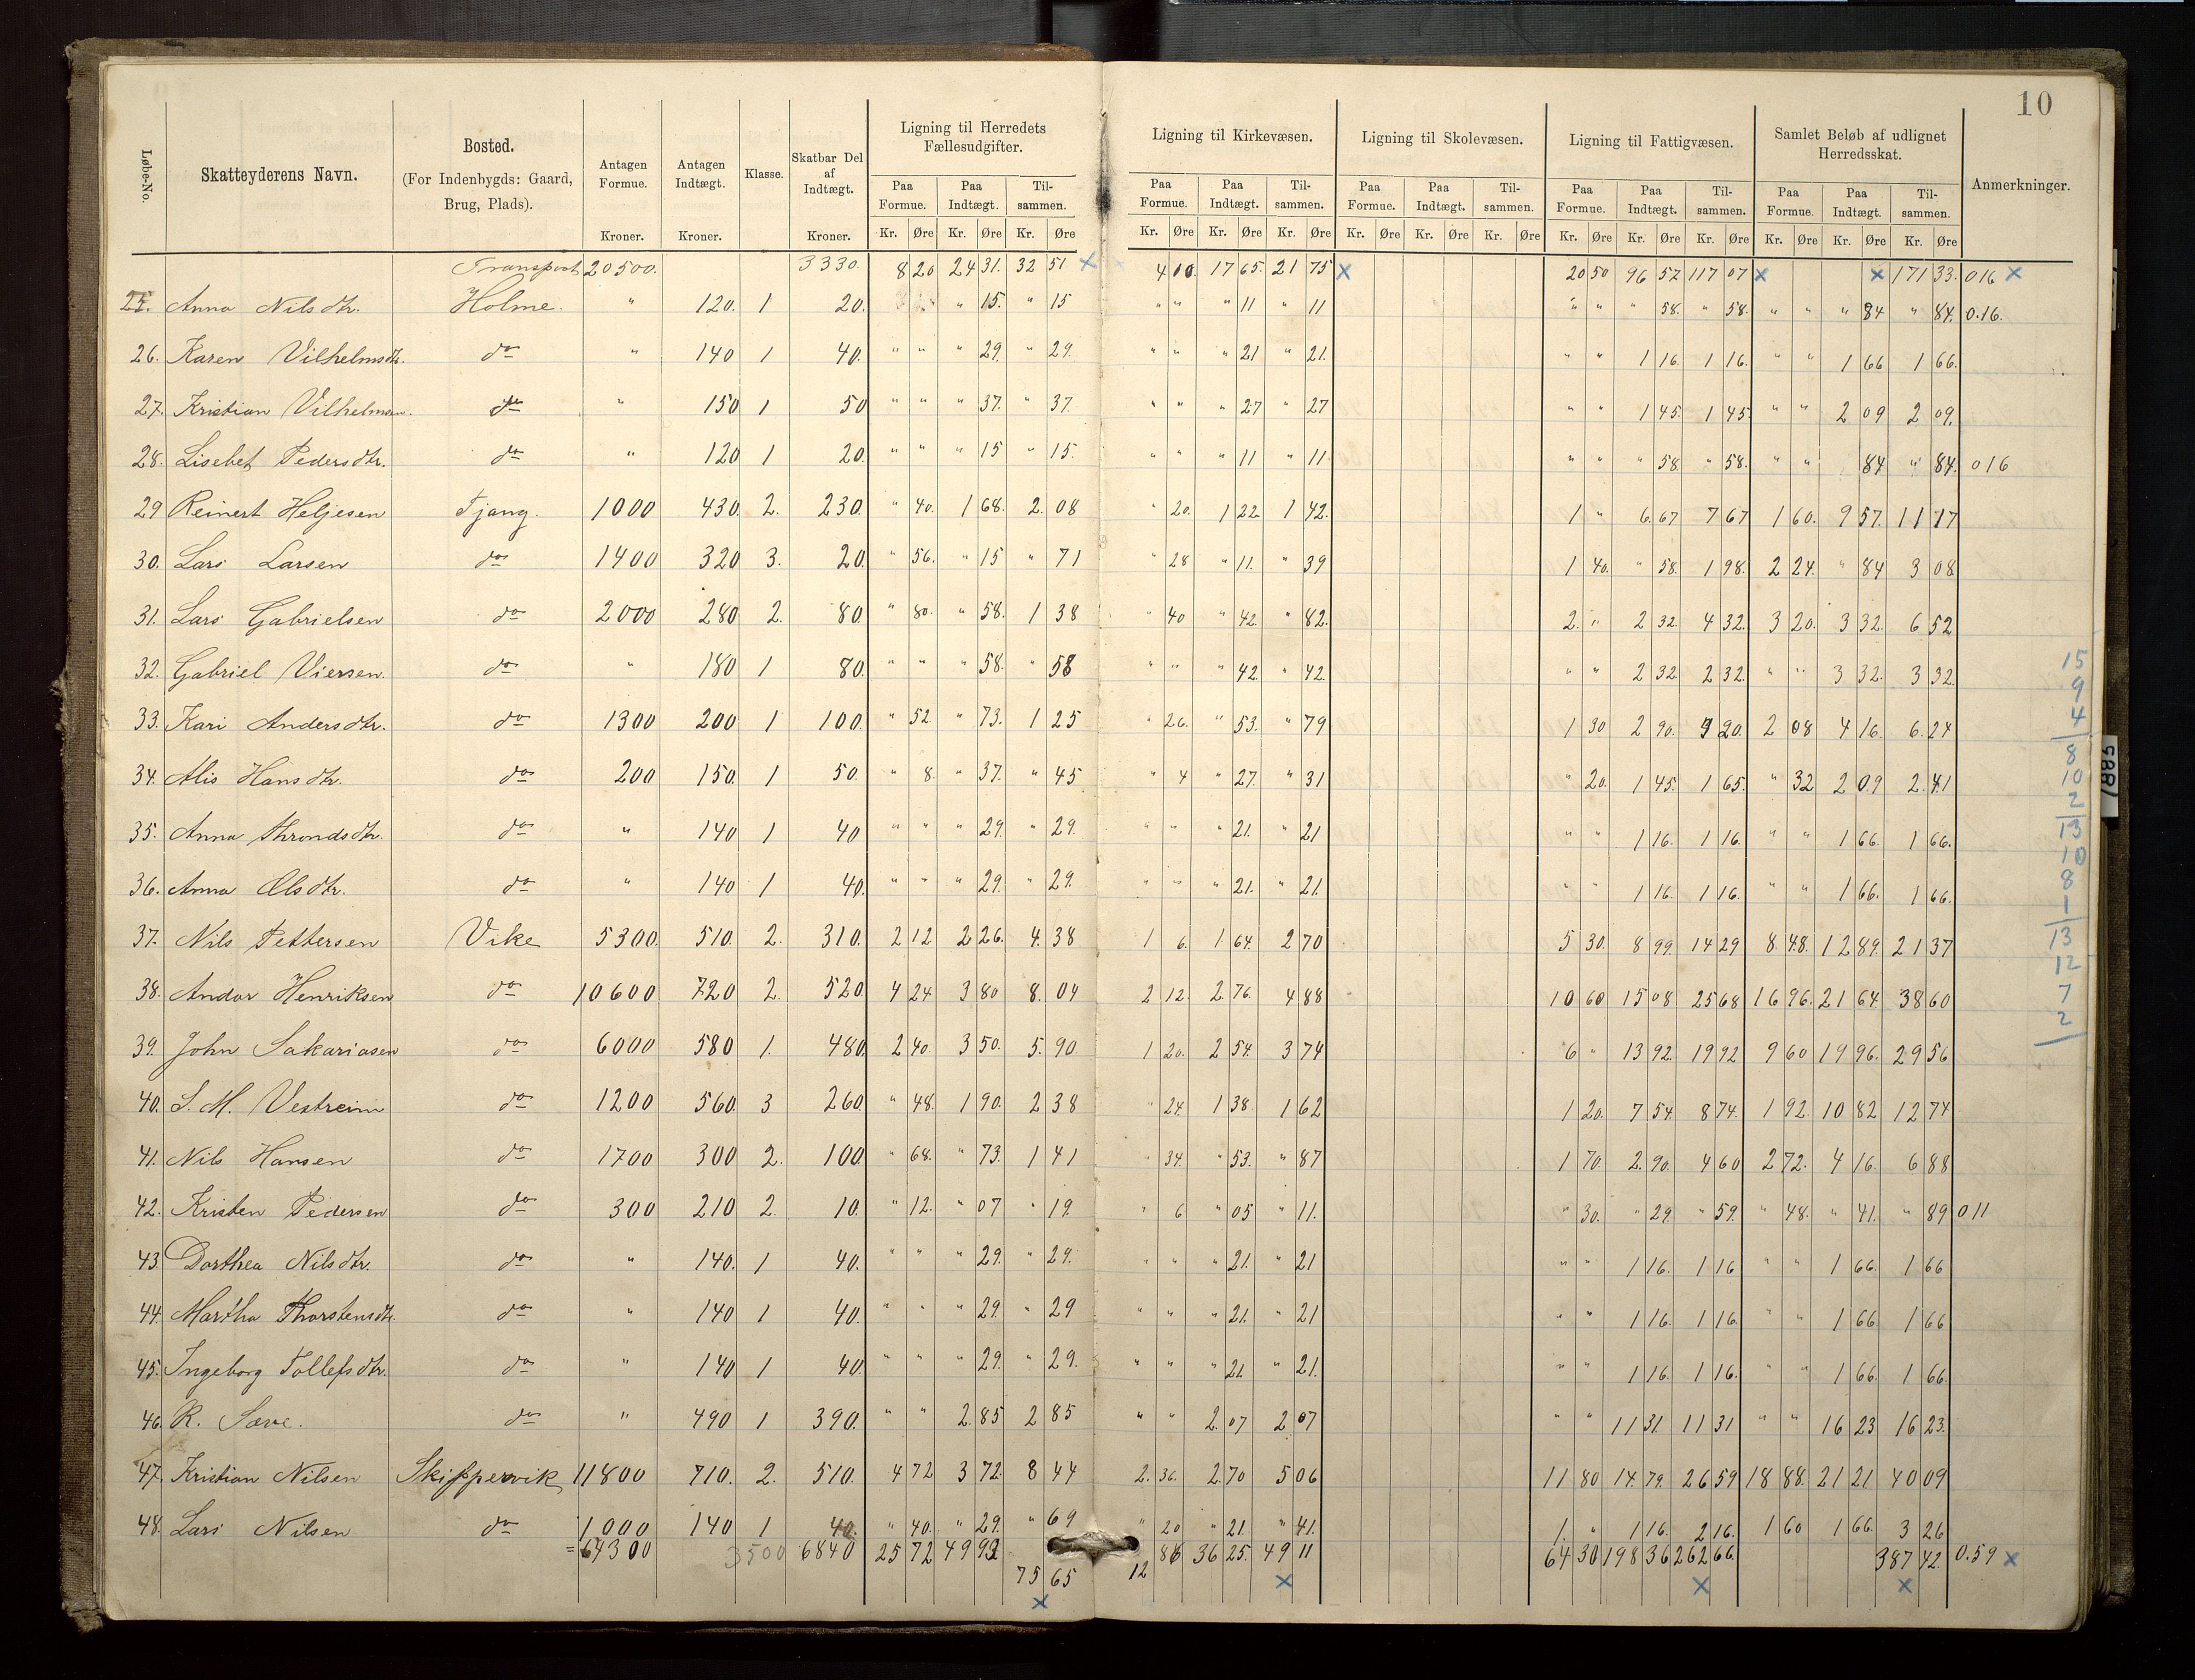 10
Løbe-No. | Skatteyderens Navn. | Bosted. (For Indenbygds: Gaard, Brug, Plads). | Antagen Formue. Kroner. | Antagen Indtægt. Kroner. | Klasse. | Skatbar Del af Indtægt. Kroner. | Ligning til Herredets Fællesudgifter. | Ligning til Kirkevæsen. | Ligning til Skolevæsen. | Ligning til Fattigvæsen. | Samlet Beløb af udlignet Herredsskat. | Anmerkninger.
Paa Formue. | Paa Indtægt. | Til-sammen. | Paa Formue. | Paa Indtægt. | Til-sammen. | Paa Formue. | Paa Indtægt. | Til-sammen. | Paa Formue. | Paa Indtægt. | Til-sammen. | Paa Formue. | Paa Indtægt. | Til-sammen.
Kr. Øre | Kr. Øre | Kr. Øre | Kr. Øre | Kr. Øre | Kr. Øre | Kr. Øre | Kr. Øre | Kr. Øre | Kr. Øre | Kr. Øre | Kr. Øre | Kr. Øre | Kr. Øre | Kr. Øre
Transport 20500. 3330. 8 20 24 31. 32 51 x 4 10. 17 65. 21 75 x 20 50 96 57 117 07 x x 171 33. 016 x
25. Anna Nilsdtr. Holme. " 120. 1 20. " 15. " 15 " " " 11 " 11 " " " 58. " 58. " " " 84 " 84. 0.16.
26. Karen Vilhelmsdtr. do " 140 1 40. " " " 29. " 29. " " " 21 " 21. " " 1 16. 1 16. " " 1 66 1 66.
27. Kristian Vilhelmsen. do " 150 1 50 " " " 37. " 37. " " " 27 " 27 " " 1 45. 1 45. " " 2 09 2 09.
28. Lisebet Pedersdtr. do " 120 1 20. " " " 15 " 15. " " " 11 " 11. " " " 58 " 58. " " 84 " 84. 016
29 Reinert Heljesen Tjang. 1000 430. 2. 230. " 40. 1 68. 2. 08 " 20. 1 22. 1 42. 1 " 6. 67 7 67 1 60. 9 57. 11 17
30. Lars Larsen do 1400 320 3. 20. " 56. " 15 " 71 " 28 " 11. " 39 1 40. " 58. 1 98. 2 24. " 84 3 08
31. Lars Gabrielsen do 2000 280 2. 80. " 80. " 58. 1 38 " 40 " 42. " 82. 2. " 2 32. 4 32. 3 20. 3 32. 6 52
32. Gabriel Viersen. do " 180 1 80. " " " 58. " 58 " " " 42. " 42. " " 2 32. 2 32. " " 3 32. 3 32.
33. Kari Andersdtr. do 1300 200 1 100. " 52 " 73. 1 25 " 26. " 53. " 79 1 30 2 90. 9 20. 2 08 4 16. 6. 24
34. Alis Hansdtr. do 200 150. 1 50. " 8. " 37. " 45 " 4 " 27. " 31 " 20. 1 45. 1 65. " 32 2 09 2. 41
35. Anna throndsdtr. do " 140 1 40 " " " 29. " 29. " " " 21. " 21 " " 1 16. 1 16. " " 1 66. 1 66.
36. Anna Olsdtr. do " 140 1 40. " " " 29. " 29. " " " 21. " 21. " " 1 16. 1 16. " " 1 66. 1 66.
37. Nils Pettersen Vike 5300. 510. 2. 310. 2 12 2 26. 4. 38 1 6. 1 64. 2 70 5 30. 8 99. 14 29 8. 48. 12 89. 21 37
38. Andor Henriksen do 10600 720 2. 520. 4 24 3 80 8. 04 2 12. 2. 76. 4 88 10 60 15 08 25 68 16 96. 21 64. 38 60
39. John Sakariasen do 6000 580 1. 480. 2 40. 3 50. 5. 90. 1 20. 2 54. 3 74 6 " 13 92. 19 92 9 60 19 96. 29 56
40. S. M. Vestreim do 1200 560. 3 260. " 48. 1 90. 2 38 " 24. 1 38. 1 62 1 20. 7 54. 8 74. 1 92. 10 82 12 74
41. Nils Hansen do 1700 300 2. 100. " 68. " 73. 1 41 " 34. " 53. " 87 1 70. 2. 90. 4 60 2 72. 4 16. 6 88
42. Kristen Pedersen do 300 210 2. 10. " 12. " 07 " 19. " 6 " 05 " 11. " 30. " 29. " 59. " 48. " 41. " 89 011
43. Dorthea Nilsdtr. do " 140. 1 40. " " " 29. " 29. " " " 21. " 21 " " 1 16. 1 16 " " 1 66. 1 66
44. Martha Thorstensdtr. do " 140 1 40. " " " 29. " 29 " " " 21. " 21 " " 1 16. 1 16. " " 1 66. 1 66
45. Ingeborg Tollefsdtr. do " 140 1 40. " " " 29. " 29. " " " 21 " 21. " " 1 16. 1 16. " " 1 66. 1 66.
46. R. Sæve. do " 490 1 390. " " 2. 85 2 85 " " 2. 07 2 07 " " 11 31. 11 31 " " 16 23 16 23.
47. Kristian Nilsen Skippervik 11800 710. 2. 510. 4 72 3 72. 8 44 2. 36. 2. 70 5 06 11 80 14. 79. 26 59 18 88. 21 21 40 09
48. Lars Nilsen do 1000 140 1 40. " 40. " 29. " 69 " 20 " 21. " 41. 1. " 1 16. 2 16. 1 60 1 66. 3 26
=64300 3500 6840 25 72 49 93 75 65 x 12 86 36 25. 49 11 x 64 30 198 36 262 66. x 387 42. x 0.59 x
15
9
4
8
10
2
13
10
8
1
13
12
7
2
1885